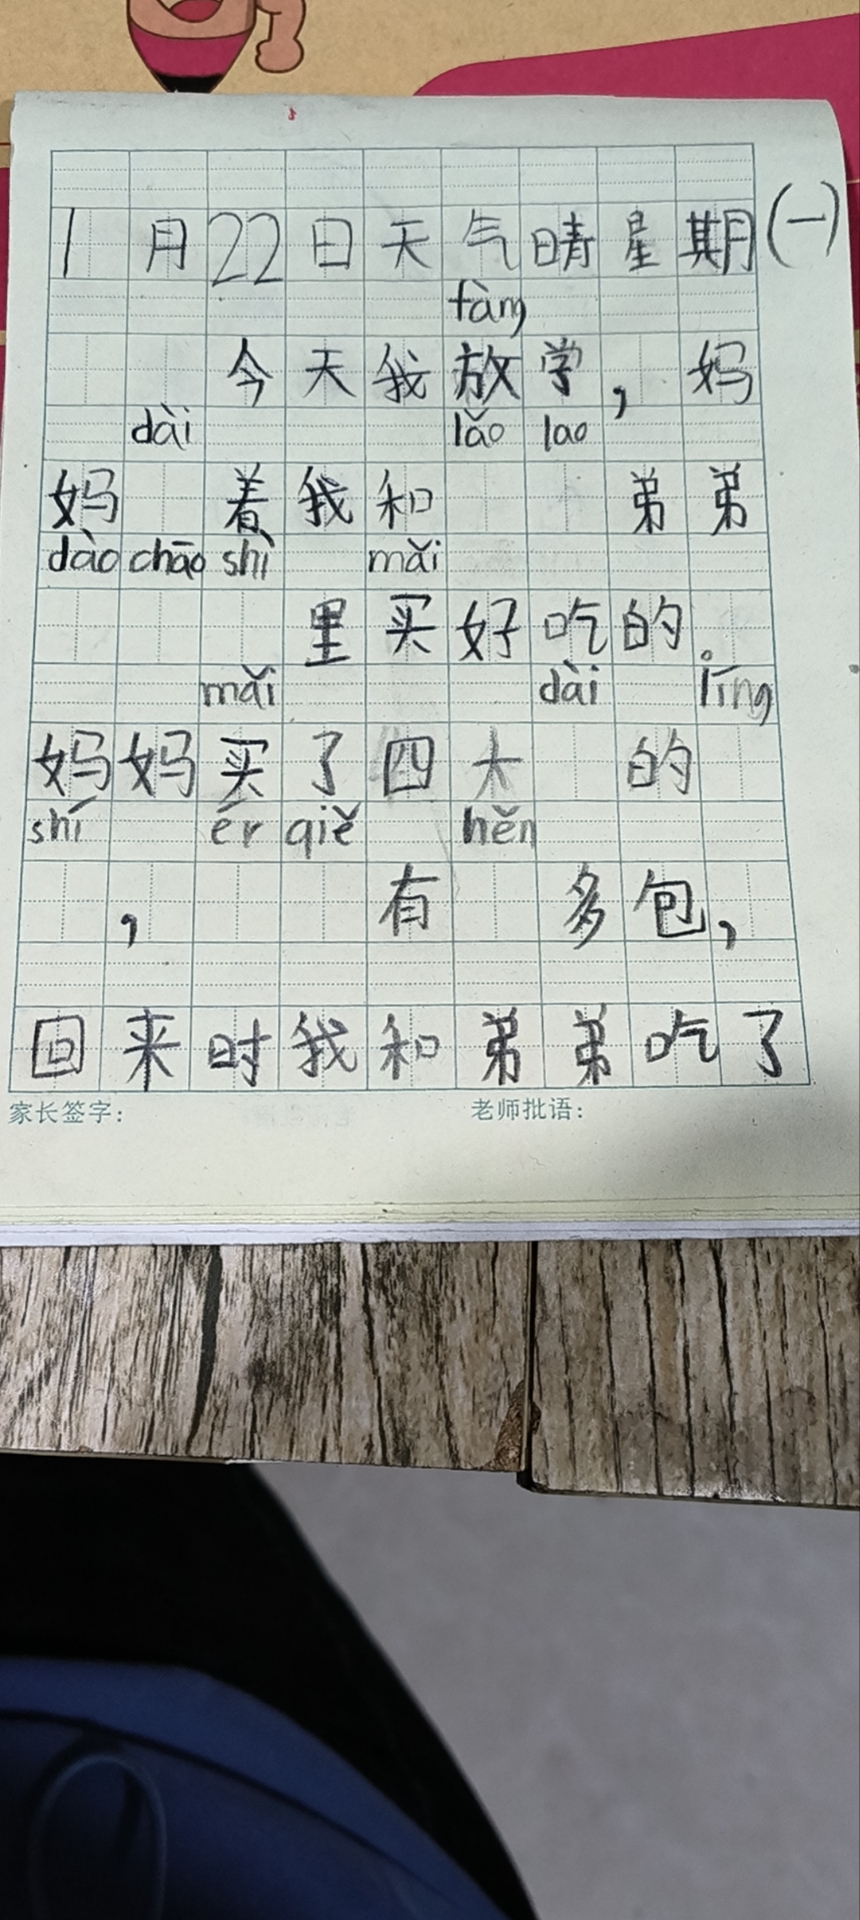 1月22日天气晴星期(一)
fàng
今天我放学，妈
dài lǎo lao
妈 着我和 弟弟
dào chāo shì mǎi
里买好吃的。
mǎi dài líng
妈妈买了四大 的
shí ér qiě hěn
， 有 多包，
回来时我和弟弟吃了
家长签字： 老师批语：